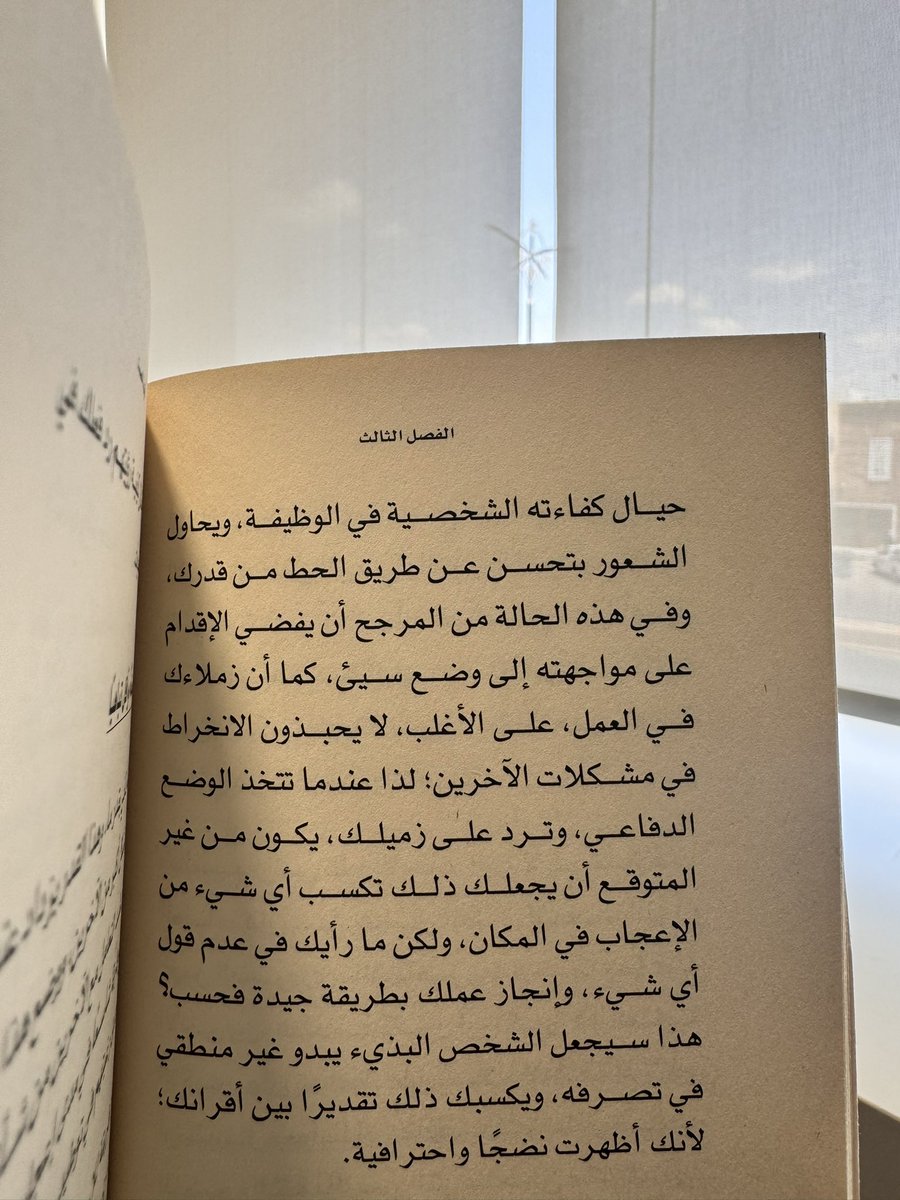 الفصل الثالث
حيال كفاءته الشخصية في الوظيفة، ويحاول
الشعور بتحسن عن طريق الحط من قدرك،
وفي هذه الحالة من المرجح أن يفضي الإقدام
على مواجهته إلى وضع سيئ، كما أن زملاءك
في العمل، على الأغلب، لا يحبذون الانخراط
في مشكلات الآخرين؛ لذا عندما تتخذ الوضع
الدفاعي، وترد على زميلك، يكون من غير
المتوقع أن يجعلك ذلك تكسب أي شيء من
الإعجاب في المكان، ولكن ما رأيك في عدم قول
أي شيء، وإنجاز عملك بطريقة جيدة فحسب؟
هذا سيجعل الشخص البذيء يبدو غير منطقي
في تصرفه، ويكسبك ذلك تقديرًا بين أقرانك؛
لأنك أظهرت نضجًا واحترافية.